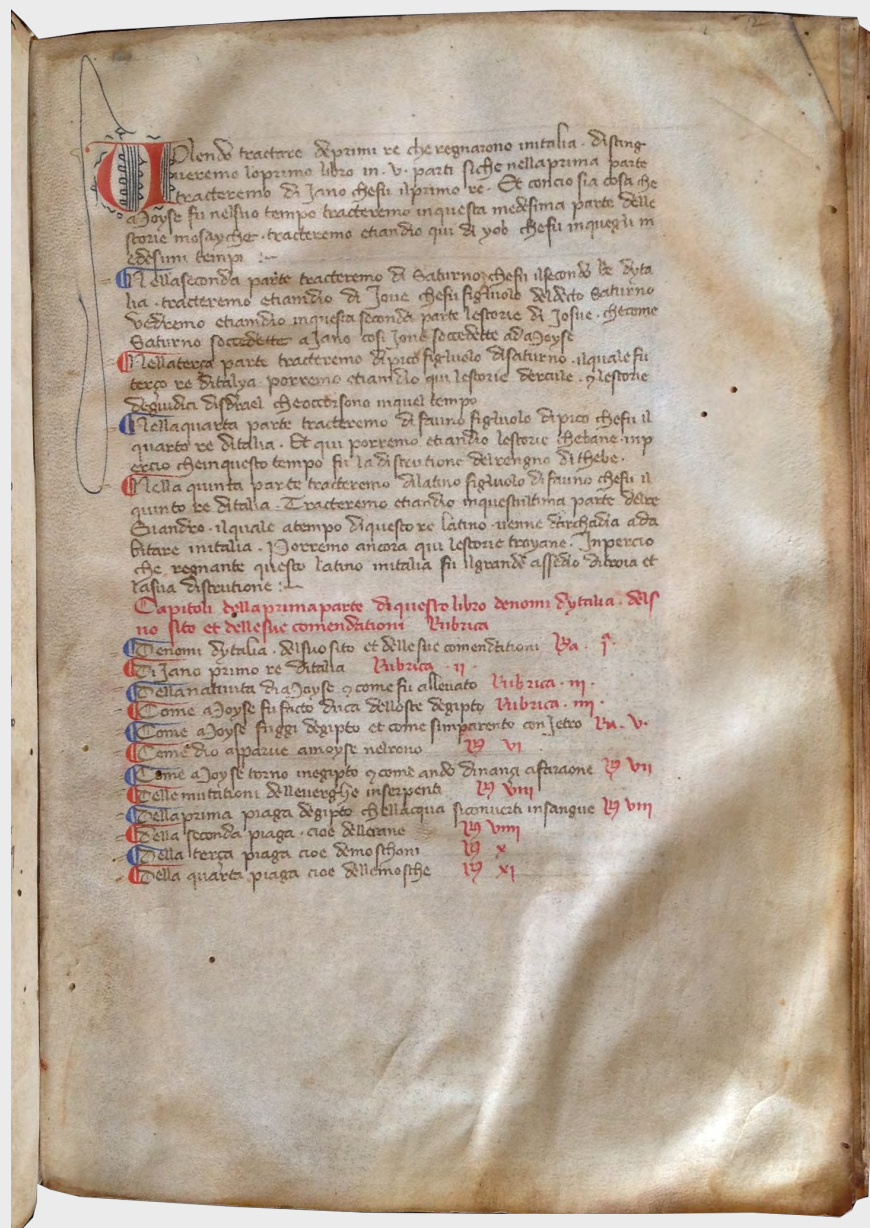 Volendo tractare de primi re che regnarono in italia . disting
ueremo lo primo libro in . v . parti si che nella prima parte
tracteremo di Jano che fu il primo re . Et concio sia cosa che
Moyse fu nel suo tempo tracteremo in questa medesima parte delle
storie mosayche . tracteremo etiandio qui di yob che fu in quegli m
edesimi tempi :~
Nella seconda parte tracteremo di Saturno che fu il secondo Re dyta
lia . tracteremo etiandio di Joue che fu figliuolo del decto Saturno
vedremo etiandio in questa seconda parte le storie di Josue . che come
Saturno soccedette a Jano cosi Jone soccedette ad a Moyse
Nella terça parte tracteremo di pico figliuolo di saturno . il quale fu
terço re ditalya . porremo etiandio qui le storie dercule . et le storie
de giudici disdrael che occorsono in quel tempo
Nella quarta parte tracteremo di fauno figliuolo di pico che fu il
quarto re ditalia . Et qui porremo etiandio le storie thebane . inp
ercio che in questo tempo fu la discrutione del rengno di thebe .
Nella quinta parte tracteremo di latino figliuolo di fauno che fu il
quinto re ditalia . Tracteremo etiandio in questultima parte del re
Euandro . il quale a tempo di questo re latino uenne darchadia ad a
bitare in italia . Porremo ancora qui le storie troyane . Inpercio
che regnante questo latino in italia fu il grande assedio di troia et
la sua discrutione :~
Capitoli della prima parte di questo libro de nomi dytalia . del s
uo sito et delle sue comendationi Rubrica
De nomi dytalia . del suo sito et delle sue comendationi Ra . i .
Di Jano primo re ditalia Rubrica . ii .
Della natiuita di Moyse et come fu alleuato Rubrica . iii .
Come Moyse fu facto duca delloste degipto Rubrica . iiii .
Come Moyse fuggi degipto et come simparento con Jetro Ra . v .
Come dio apparue a moyse nel rouo R vi .
Come Moyse torno in egipto et come ando dinançi a faraone R vii
Delle mutationi delle uerghe in serpenti R viii
Della prima piaga degipto che llacqua si conuerti in sangue R viii
Della seconda piaga . cioe delle rane R viiii
Della terça piaga cioe de moschoni R x
Della quarta piaga cioe delle mosche R xi